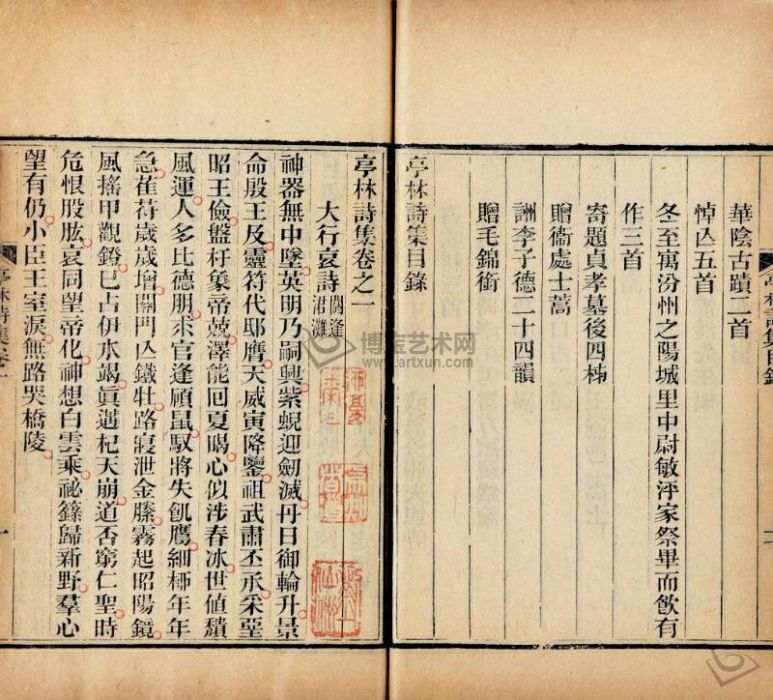 華陰古蹟二首
悼亾五首
冬至寓汾州之陽城里中尉敏泙家祭畢而飲有
作三首
寄題貞孝墓後四柹
贈衞處士蒿
詶李子德二十四韻
贈毛錦銜
亭林詩集目錄
亭林詩集卷之一
大行哀詩 閼逢涒灘
神器無中墜英明乃嗣興紫蜺迎劒滅丹日御輪升景
命殷王及靈符代邸膺天威寅降鑒祖武肅丕承采堊
昭王儉盤杅象帝兢澤能回夏暍心似涉春冰世値穨
風運人多比德朋求官逢碩鼠馭將失飢鷹細栁年年
急萑苻歲歲增關門亾鐵牡路寢泄金縢霧起昭陽鏡
風搖甲觀鐙已占伊水竭眞遘杞天崩道否窮仁聖時
危恨股肱哀同望帝化神想白雲乘祕籙歸新野羣心
望有仍小臣王室淚無路哭橋陵
亭林詩集卷一
一
博宝艺术网
www.artxun.com